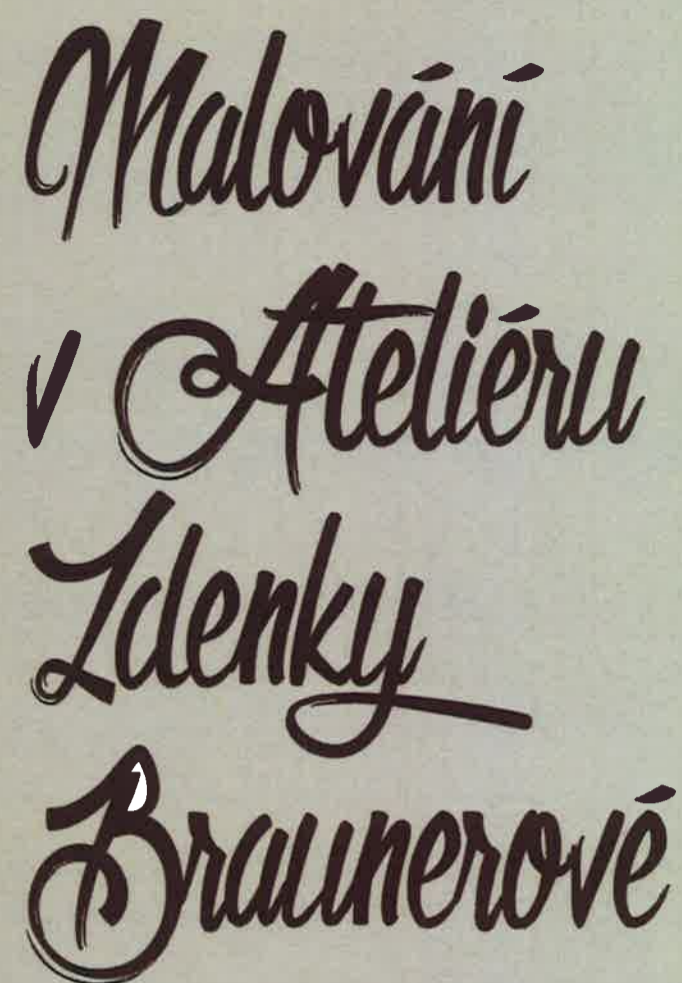 Malování
v Ateliéru
Zdenky
Braunerové